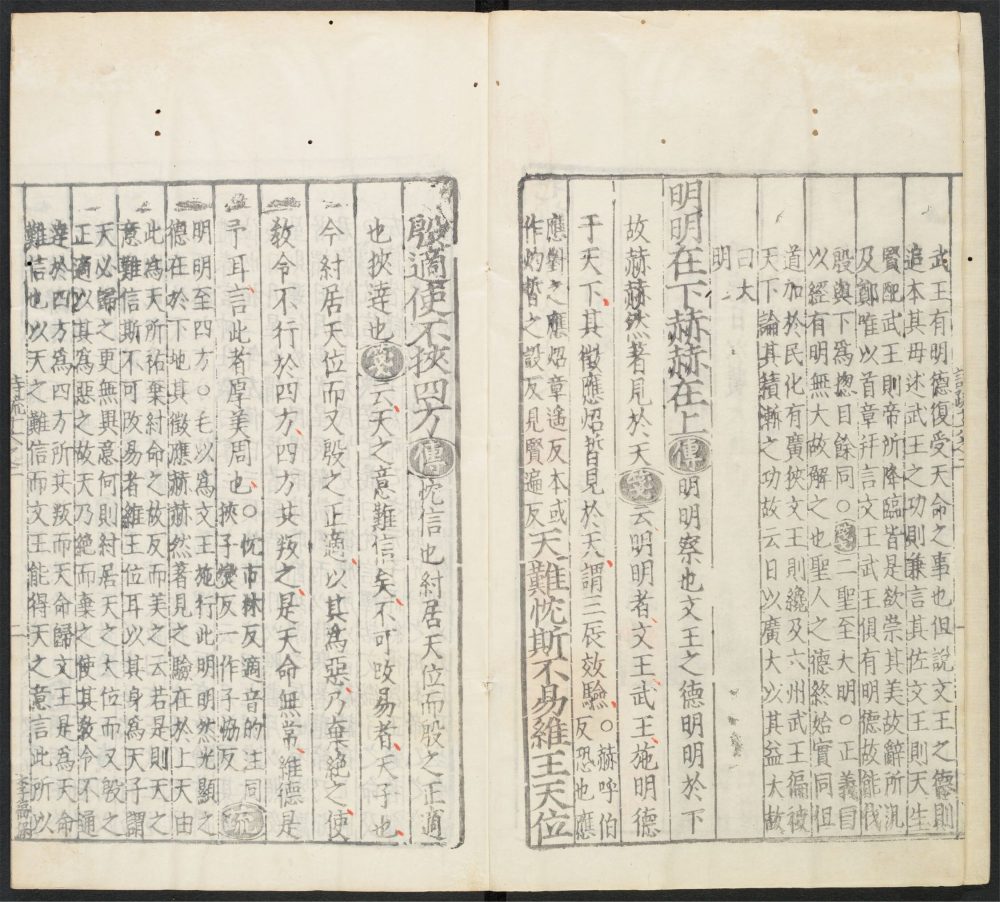 武王有明德復受天命之事也但說文王之德則
追本其母述武王之功則兼言其佐文王則天生
賢配武王則帝所降臨皆是欲崇其美故辭所汎
及鄭唯以首章并言文王武王俱有明德故能伐
殷與下爲揔目餘同○箋二聖至大明○正義曰
以經有明無大故解之也聖人之德終始實同但
道加於民化有廣狹文王則纔及六州武王徧被
天下論其積漸之功故云日以廣大以其益大故
曰大
明
明明在下赫赫在上傳明明察也文王之德明明於下
故赫赫然著見於天箋云明明者文王武王施明德
于天下其徵應炤晳見於天謂三辰效驗○赫呼伯
反恐也應
應對之應炤章遙反本或
作灼晳之設反見賢遍反天難忱斯不易維王天位
殷適使不挾四方傳忱信也紂居天位而殷之正適
也挾達也箋云天之意難信矣不可改易者天子也
今紂居天位而又殷之正適以其爲惡乃棄絕之使
敎令不行於四方四方共叛之是天命無常維德是
予耳言此者厚美周也○忱市林反適音的注同
挾子燮反一作子協反疏
明明至四方○毛以爲文王施行此明明然光顯之
德在於下地其徵應赫赫然著見之驗在於上天由
此爲天所祐棄紂命之故反而美之云若是則天之
意難信斯不可改易者維王位耳以其身爲天子謂
天必歸之更無異意何則紂居天之大位而又殷之
正適以其爲惡之故天乃絕而棄之使其敎令不通
達於四方爲四方所共叛而天命歸文王是爲天命
難信也以天之難信而文王能得天之意言此所以